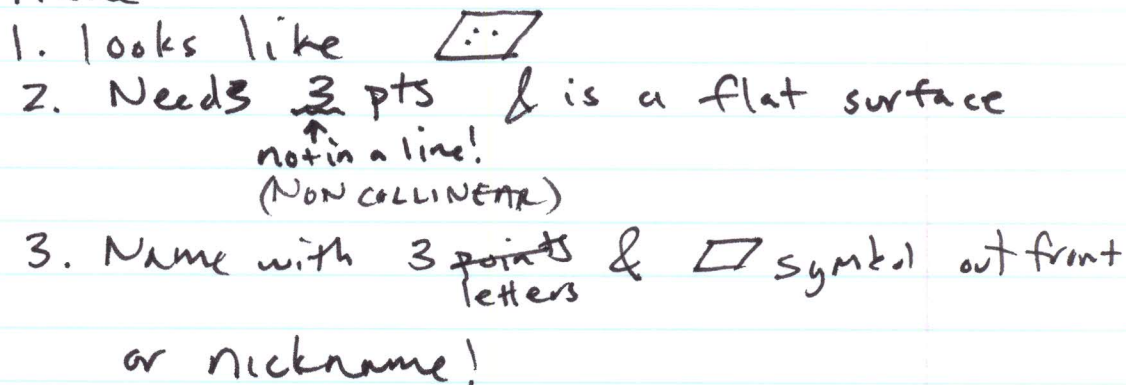 1. looks like
2. Needs 3 pts & is a flat surface
not in a line!
(NON COLLINEAR)
3. Name with 3 points & symbol out front
letters
or nickname!